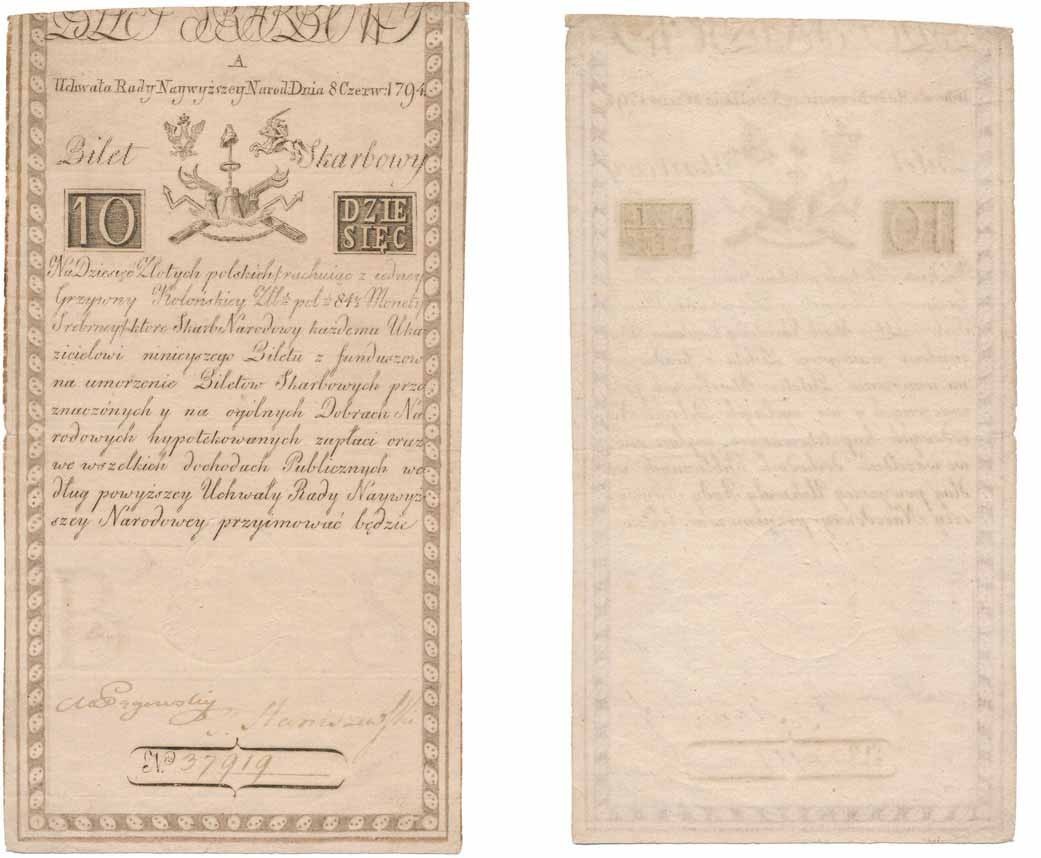 BILET SKARBOWY
A
Uchwała Rady Naywyższey Narod: Dnia 8 Czerw: 1794.
Bilet Skarbowy
10 DZIE
SIĘC
Na Dziesięc Złotych polskich, rachuiąc z iedney
Grzywny Kolońskiey Zlł: pol: 84½ Monety
Srebrney, które Skarb Narodowy każdemu Uka
zicielowi ninieyszego Biletu z funduszow
na umorzenie Biletow Skarbowych prze
znaczónych y na ogólnych Dobrach Na
rodowych hypotekowanych zapłaci oraz
we wszelkich dochodach Publicznych we
dług powyższey Uchwały Rady Naywyż
szey Narodowey przyimować będzie
Staniszewski
No 37919